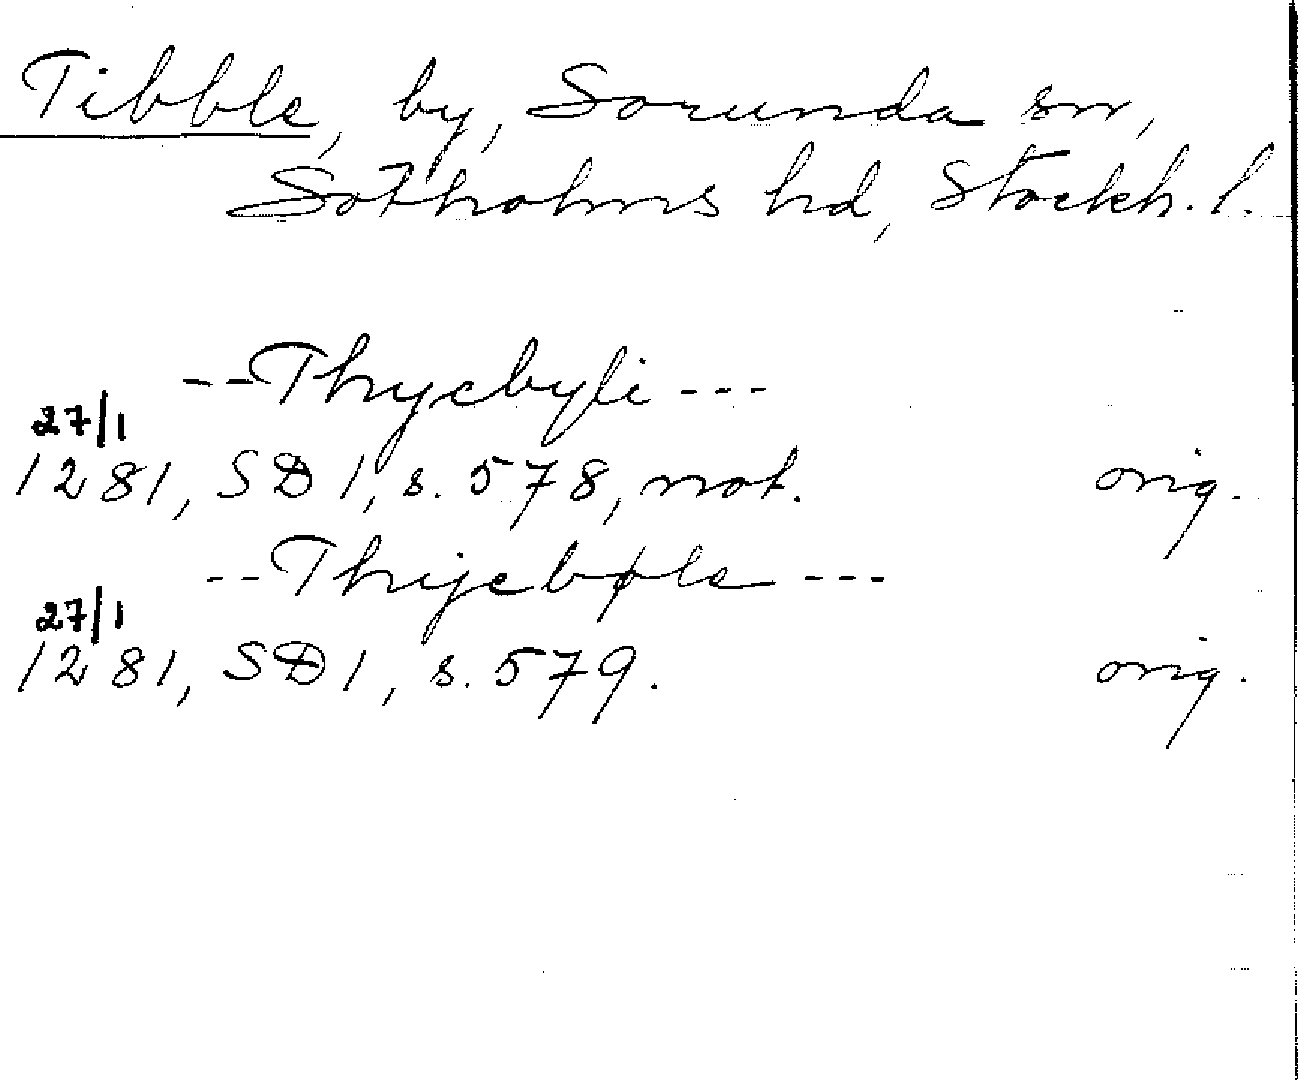 Tibble, by, Sorunda sn,
Sotholms hd, Stockh. l.
--Thycbyli---
27/1
1281, SD 1, s. 578, not. orig.
--Thijcbøle---
27/1
1281, SD 1, s. 579. orig.